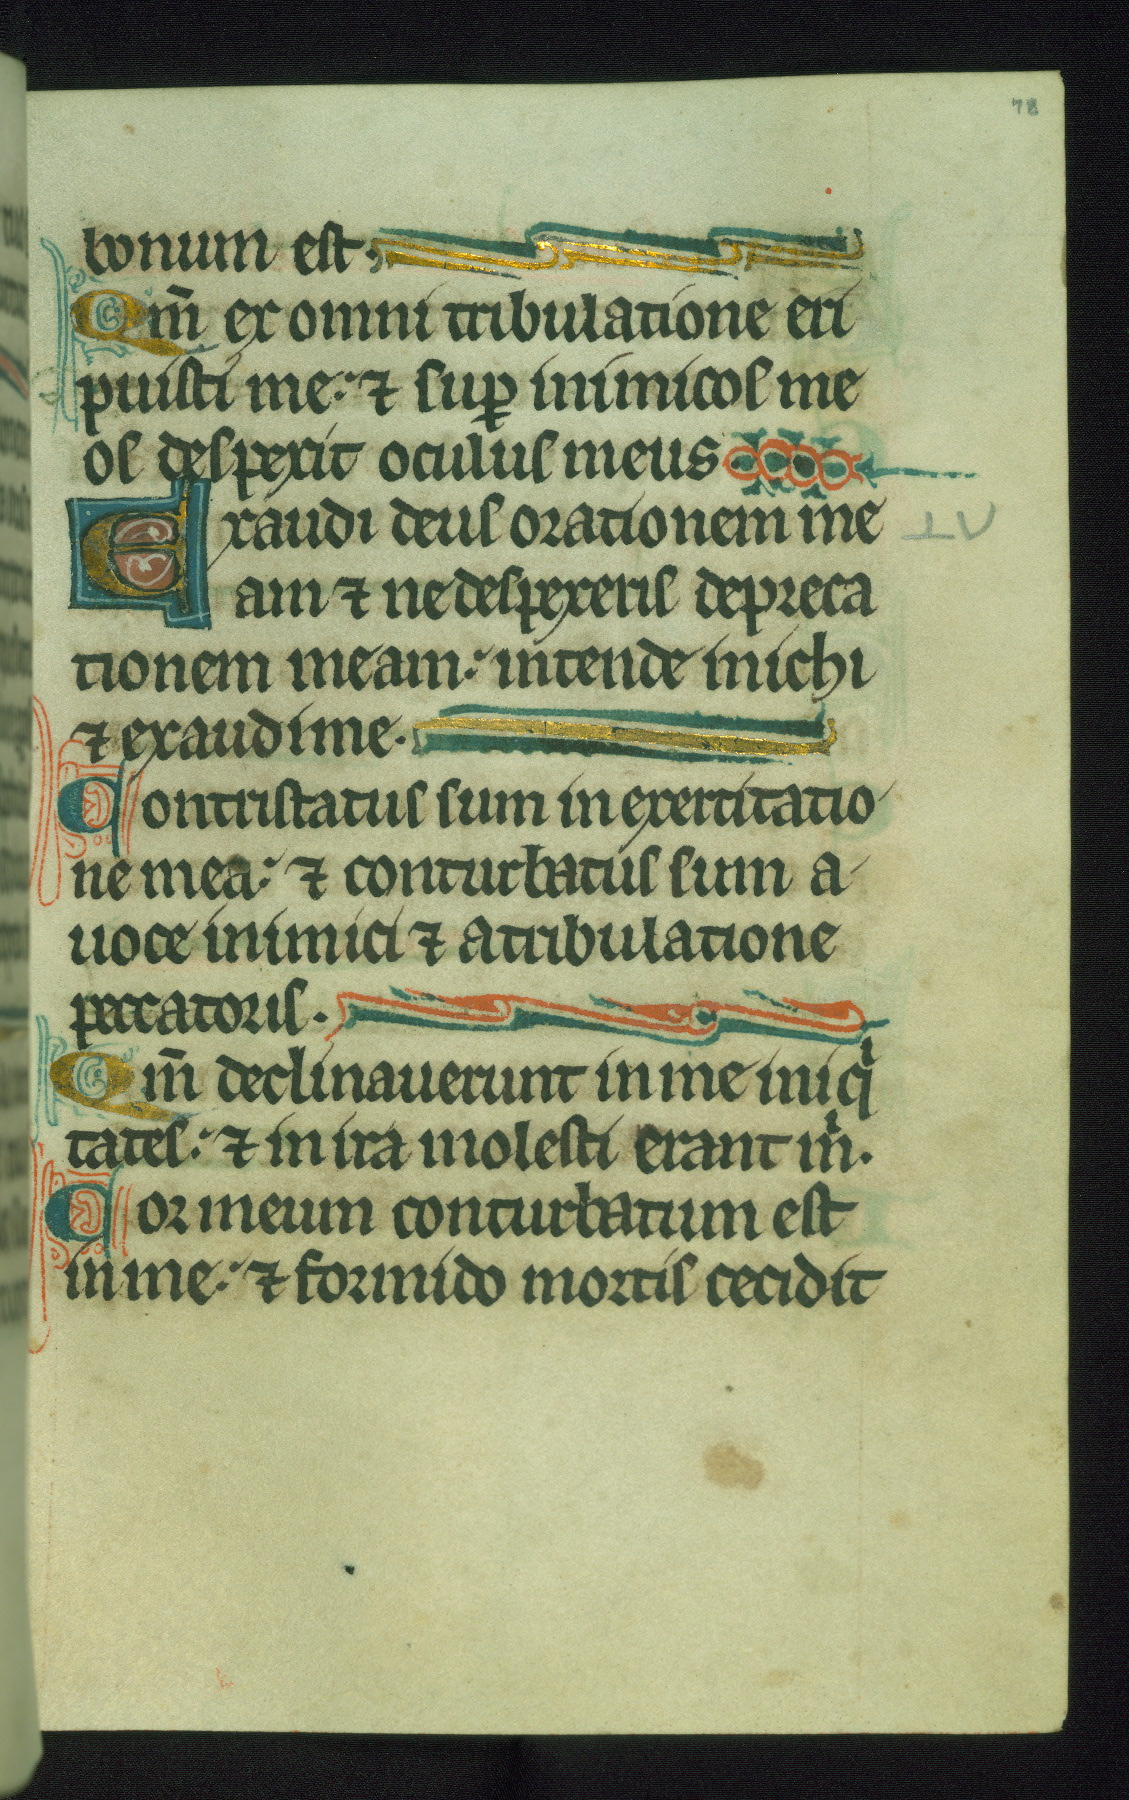 78
bonum est.
Qm̄ ex omni tribulatione eri
puisti me: ⁊ suꝑ inimicos me
os despexit oculus meus
Exaudi deus orationem me
LV
am ⁊ ne despexeris depreca
tionem meam: intende michi
⁊ exaudi me.
Contristatus sum in exertitatio
ne mea: ⁊ conturbatus sum a
uoce inimici ⁊ a tribulatione
peccatoris.
Qm̄ declinauerunt in me iniqͥ
tates: ⁊ in ira molesti erant m̄ͥ.
Cor meum conturbatum est
in me: ⁊ formido mortis cecidit